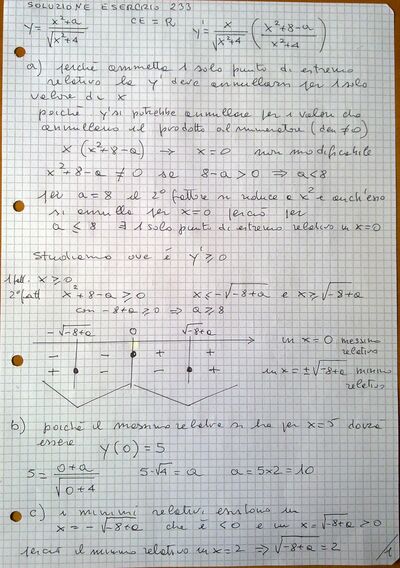 SOLUZIONE ESERCIZIO 233
y = x²+a / √(x²+4)   CE = R   y' = x / √(x²+4) ( x²+8-a / x²+4 )
a) perché ammetta 1 solo punto di estremo
relativo la y' deve annullarsi per 1 solo
valore di x
poiché y' si potrebbe annullare per i valori che
annullano il prodotto al numeratore (den ≠ 0)
x (x²+8-a) → x=0 non modificabile
x²+8-a ≠ 0 se 8-a > 0 ⇒ a<8
per a = 8 il 2° fattore si reduce a x² e anch'esso
si annulla per x=0 perciò per
a ≤ 8 ∃ 1 solo punto di estremo relativo in x=0
Studiamo ove è y' ≥ 0
1 fatt. x ≥ 0
2° fatt x²+8-a ≥ 0   x ≤ -√(-8+a) e x ≥ √(-8+a)
con -8+a ≥ 0 ⇒ a ≥ 8
-√(-8+a)   0   √(-8+a)
in x=0 massimo
relativo
- - + +
+ - - +
in x = ±√(-8+a) minimo
relativo
b) poiché il massimo relativo si ha per x=5 dovrà
essere
y(0) = 5
5 = 0+a / √(0+4)   5·√4 = a   a = 5×2 = 10
c) i minimi relativi esistono in
x = -√(-8+a) che è <0 e in x = √(-8+a) > 0
perciò il minimo relativo in x=2 ⇒ √(-8+a) = 2
1